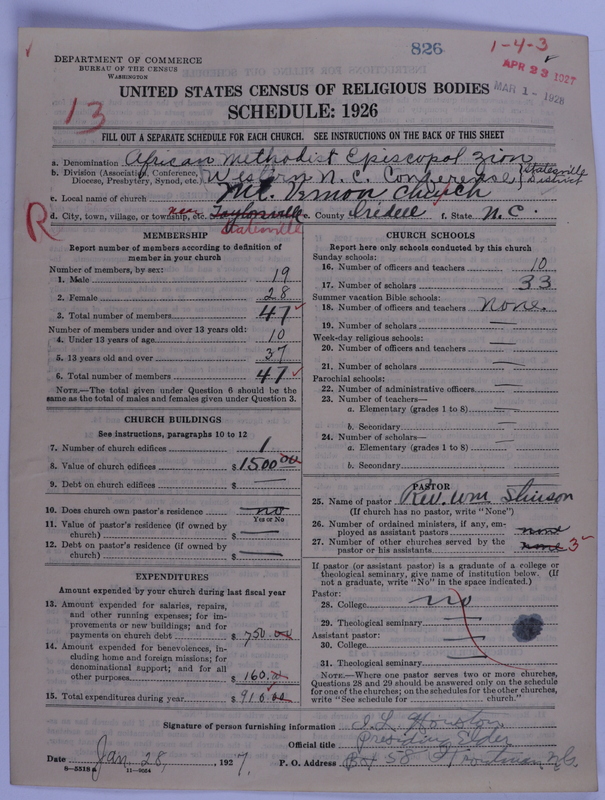 826
1-4-3
APR 23 1927
MAR 1 - 1928
DEPARTMENT OF COMMERCE
BUREAU OF THE CENSUS
WASHINGTON
UNITED STATES CENSUS OF RELIGIOUS BODIES
SCHEDULE: 1926
13
FILL OUT A SEPARATE SCHEDULE FOR EACH CHURCH. SEE INSTRUCTIONS ON THE BACK OF THIS SHEET
a. Denomination African Methodist Episcopal Zion
b. Division (Association, Conference, Diocese, Presbytery, Synod, etc.) Western N.C. Conference (Statesville District
c. Local name of church Mt. Vernon Church
R
d. City, town, village, or township, etc. near Taylorsville e. County Iredell f. State N.C.
Statesville
MEMBERSHIP
Report number of members according to definition of
member in your church
Number of members, by sex:
1. Male 19
2. Female 28
3. Total number of members 47
Number of members under and over 13 years old:
4. Under 13 years of age 10
5. 13 years old and over 37
6. Total number of members 47
NOTE.—The total given under Question 6 should be
same as the total of males and females given under Question 3.
CHURCH BUILDINGS
See instructions, paragraphs 10 to 12
7. Number of church edifices 1
8. Value of church edifices $1500.00
9. Debt on church edifices $ —
10. Does church own pastor's residence no
Yes or No
11. Value of pastor's residence (if owned by
church) $ —
12. Debt on pastor's residence (if owned by
church) $ —
EXPENDITURES
Amount expended by your church during last fiscal year
13. Amount expended for salaries, repairs,
and other running expenses; for im-
provements or new buildings; and for
payments on church debt $ 750.00
14. Amount expended for benevolences, in-
cluding home and foreign missions; for
denominational support; and for all
other purposes $ 160.00
15. Total expenditures during year $ 910.00
CHURCH SCHOOLS
Report here only schools conducted by this church
Sunday schools:
16. Number of officers and teachers 10
17. Number of scholars 33
Summer vacation Bible schools:
18. Number of officers and teachers None.
19. Number of scholars —
Week-day religious schools:
20. Number of officers and teachers —
21. Number of scholars —
Parochial schools:
22. Number of administrative officers —
23. Number of teachers—
a. Elementary (grades 1 to 8) —
b. Secondary —
24. Number of scholars—
a. Elementary (grades 1 to 8) —
b. Secondary
PASTOR
25. Name of pastor Rev. Wm Stinson
(If church has no pastor, write "None")
26. Number of ordained ministers, if any, em-
ployed as assistant pastors none
27. Number of other churches served by the
pastor or his assistants none 3
If pastor (or assistant pastor) is a graduate of a college or
theological seminary, give name of institution below. (If
not a graduate, write "No" in the space indicated.)
Pastor:
28. College no
29. Theological seminary —
Assistant pastor:
30. College —
31. Theological seminary —
NOTE.—Where one pastor serves two or more churches,
Questions 28 and 29 should be answered only on the schedule
for one of the churches; on the schedules for the other churches,
write "See schedule for church."
Signature of person furnishing information Houston
Official title Presiding Elder
Date Jan. 28, , 1927. P. O. Address Box 58 Troutman N.C.
8-5318 a 11-9054